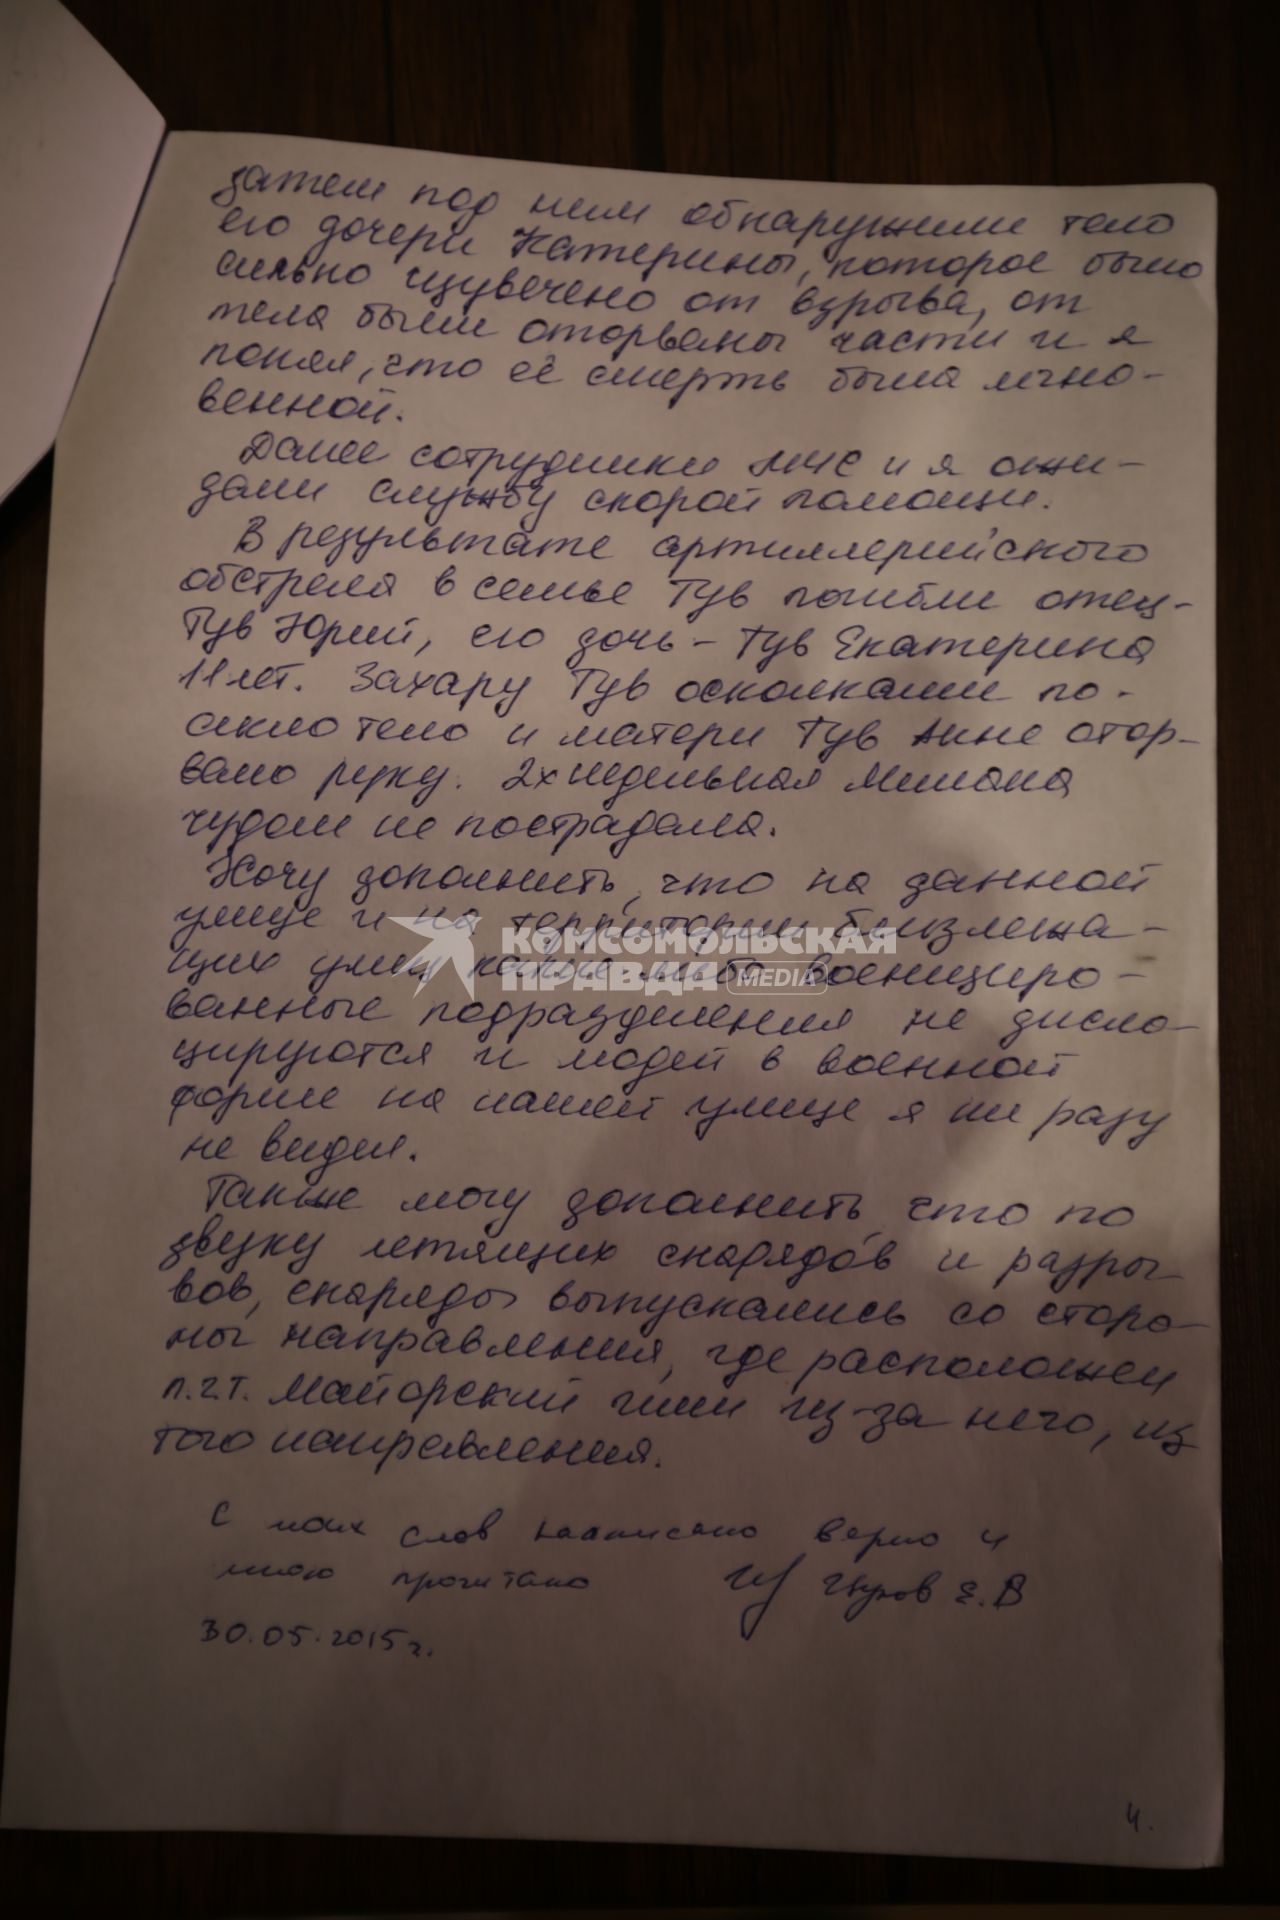 затем под ним обнаружили тело
его дочери Катерины, которое было
сильно изувечено от взрыва, от
тела были оторваны части и я
понял, что её смерть была мгно-
венной.
Далее сотрудники МЧС и я ожи-
дали службу скорой помощи.
В результате артиллерийского
обстрела в семье Тув погибли отец-
Тув Юрий, его дочь - Тув Екатерина
11 лет. Захару Тув осколками по-
секло тело и матери Тув Анне отор-
вало руку. 2х недельная Милана
чудом не пострадала.
Хочу дополнить, что на данной
улице и на территории близлежа-
щих улиц какие либо военизиро-
ванные подразделения не дисло-
цируются и людей в военной
форме на нашей улице я ни разу
не видел.
Также могу дополнить, что по
звуку летящих снарядов и разры-
вов, снаряды выпускались со сторо-
ны направления, где расположен
п.г.т. Майорский или из-за него, из
того направления.
С моих слов написано верно и
мною прочитано Е.В
30.05.2015г.
4.
КОМСОМОЛЬСКАЯ
ПРАВДА MEDIA